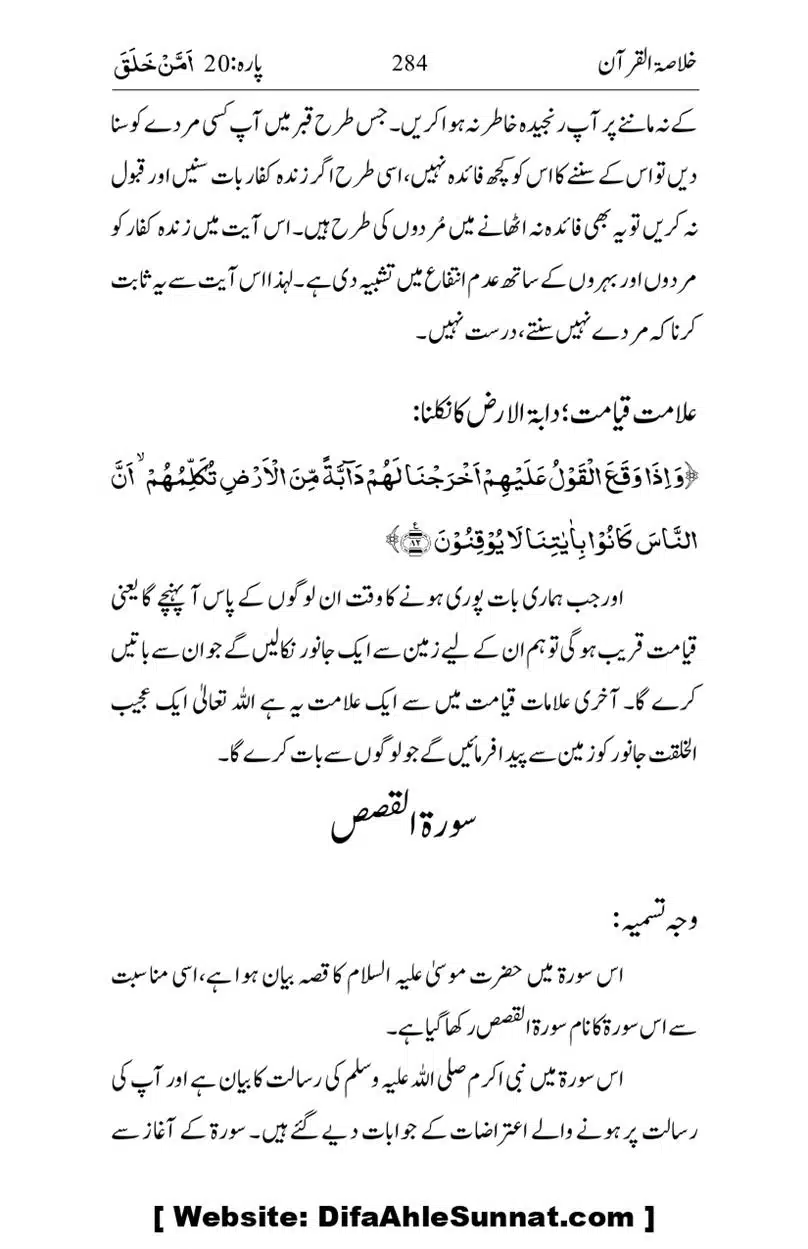 خلاصۃ القرآن 284 پارہ:20 اَمَّنْ خَلَقَ
کے نہ ماننے پر آپ رنجیدہ خاطر نہ ہوا کریں۔ جس طرح قبر میں آپ کسی مردے کو سنا
دیں تو اس کے سننے کا اس کو کچھ فائدہ نہیں، اسی طرح اگر زندہ کفار بات سنیں اور قبول
نہ کریں تو یہ بھی فائدہ نہ اٹھانے میں مُردوں کی طرح ہیں۔ اس آیت میں زندہ کفار کو
مردوں اور بہروں کے ساتھ عدم انتفاع میں تشبیہ دی ہے۔ لہذا اس آیت سے یہ ثابت
کرنا کہ مردے نہیں سنتے، درست نہیں۔
علامت قیامت؛ دابۃ الارض کا نکلنا:
﴿وَ اِذَا وَقَعَ الْقَوْلُ عَلَیْهِمْ اَخْرَجْنَا لَهُمْ دَآبَّةً مِّنَ الْاَرْضِ تُكَلِّمُهُمْ ۙ اَنَّ
النَّاسَ كَانُوْا بِاٰیٰتِنَا لَا یُوْقِنُوْنَ ﴿۸۲﴾﴾
اور جب ہماری بات پوری ہونے کا وقت ان لوگوں کے پاس آ پہنچے گا یعنی
قیامت قریب ہو گی تو ہم ان کے لیے زمین سے ایک جانور نکالیں گے جو ان سے باتیں
کرے گا۔ آخری علامات قیامت میں سے ایک علامت یہ ہے اللہ تعالیٰ ایک عجیب
الخلقت جانور کو زمین سے پیدا فرمائیں گے جو لوگوں سے بات کرے گا۔
سورۃ القصص
وجہ تسمیہ:
اس سورۃ میں حضرت موسیٰ علیہ السلام کا قصہ بیان ہوا ہے، اسی مناسبت
سے اس سورۃ کا نام سورۃ القصص رکھا گیا ہے۔
اس سورۃ میں نبی اکرم صلی اللہ علیہ وسلم کی رسالت کا بیان ہے اور آپ کی
رسالت پر ہونے والے اعتراضات کے جوابات دیے گئے ہیں۔ سورۃ کے آغاز سے
[ Website: DifaAhleSunnat.com ]